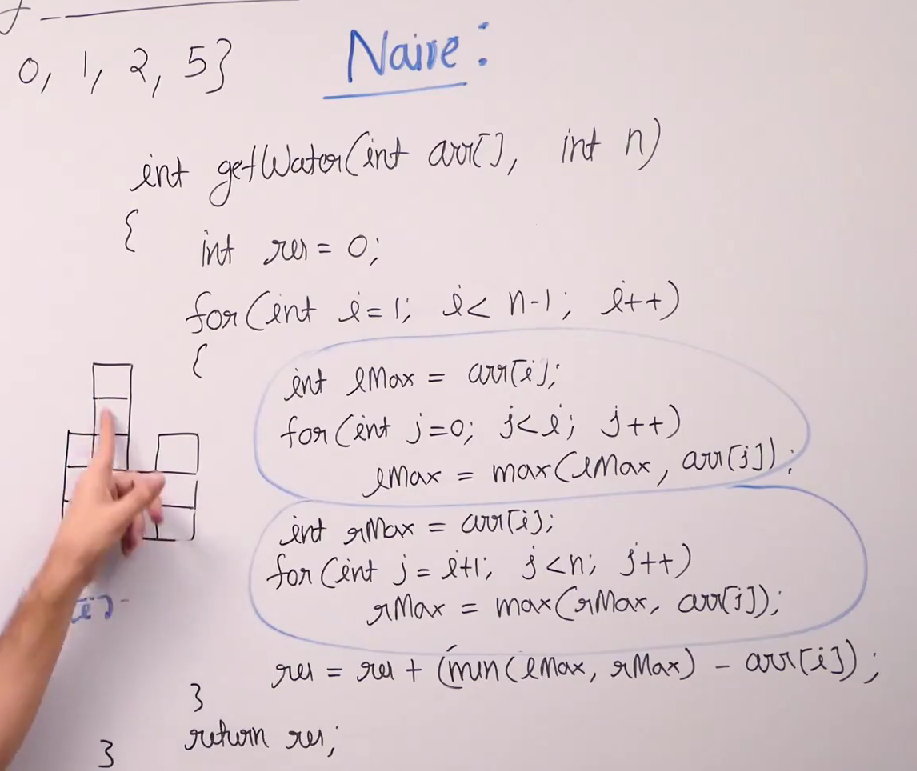 0, 1, 2, 5}
Naive:
int getWater(int arr[], int n)
{
int res = 0;
for(int i=1; i< n-1; i++)
{
int lMax = arr[i];
for(int j=0; j<i; j++)
lMax = max(lMax, arr[j]);
int rMax = arr[i];
for(int j=i+1; j<n; j++)
rMax = max(rMax, arr[j]);
res = res + (min(lMax, rMax) - arr[i]);
}
return res;
}